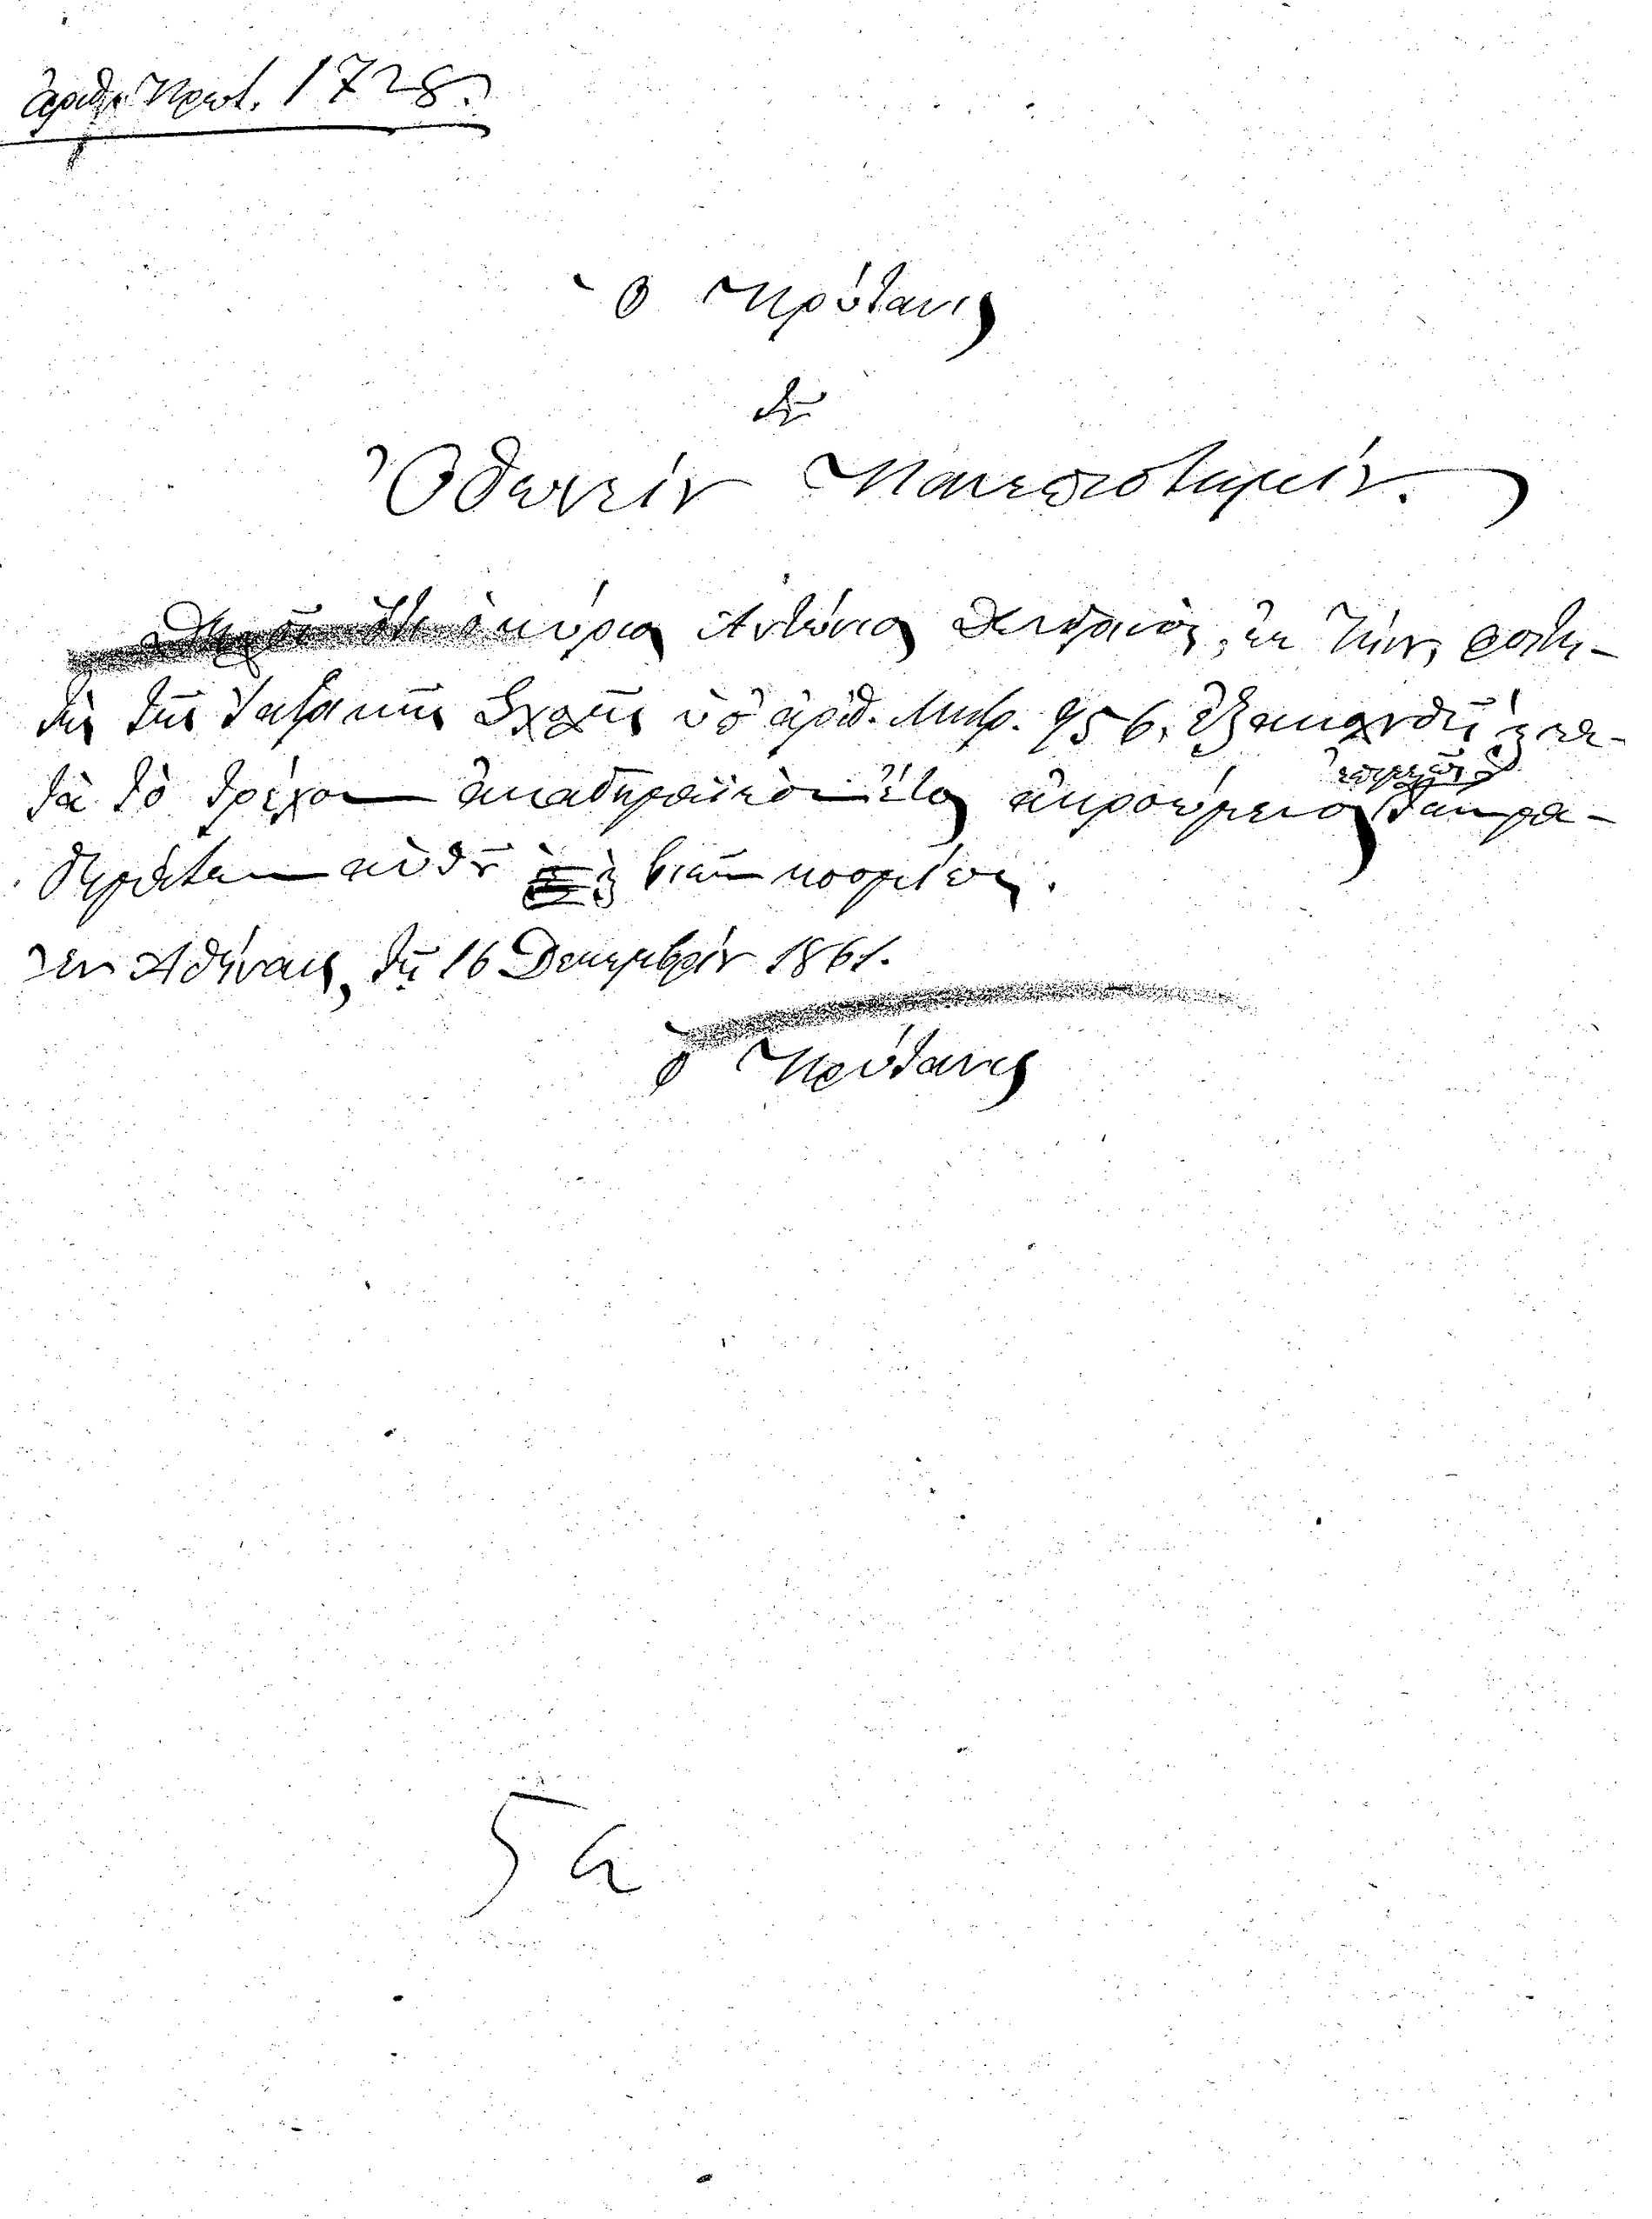 ἀριθ. Πρωτ. 1728.
Ὁ Πρύτανις
τοῦ
Ὀθωνείου Πανεπιστημίου.
Δηλοῖ ὅτι ὁ κύριος Ἀντώνιος ἐκ Τήνου, φοιτη-
τὴς τῆς Ἰατρικῆς Σχολῆς ὑπ' ἀριθ. Μητρ. 956, ἐξακολουθεῖ κα-
τὰ τὸ τρέχον ἀκαδημαϊκὸν ἔτος ἀκροώμενος ἐπιμελῶς τῶν μα-
θημάτων αὐτοῦ καὶ βιῶν κοσμίως.
Ἐν Ἀθήναις, τῇ 16 Δεκεμβρίου 1861.
Ὁ Πρύτανις
5α